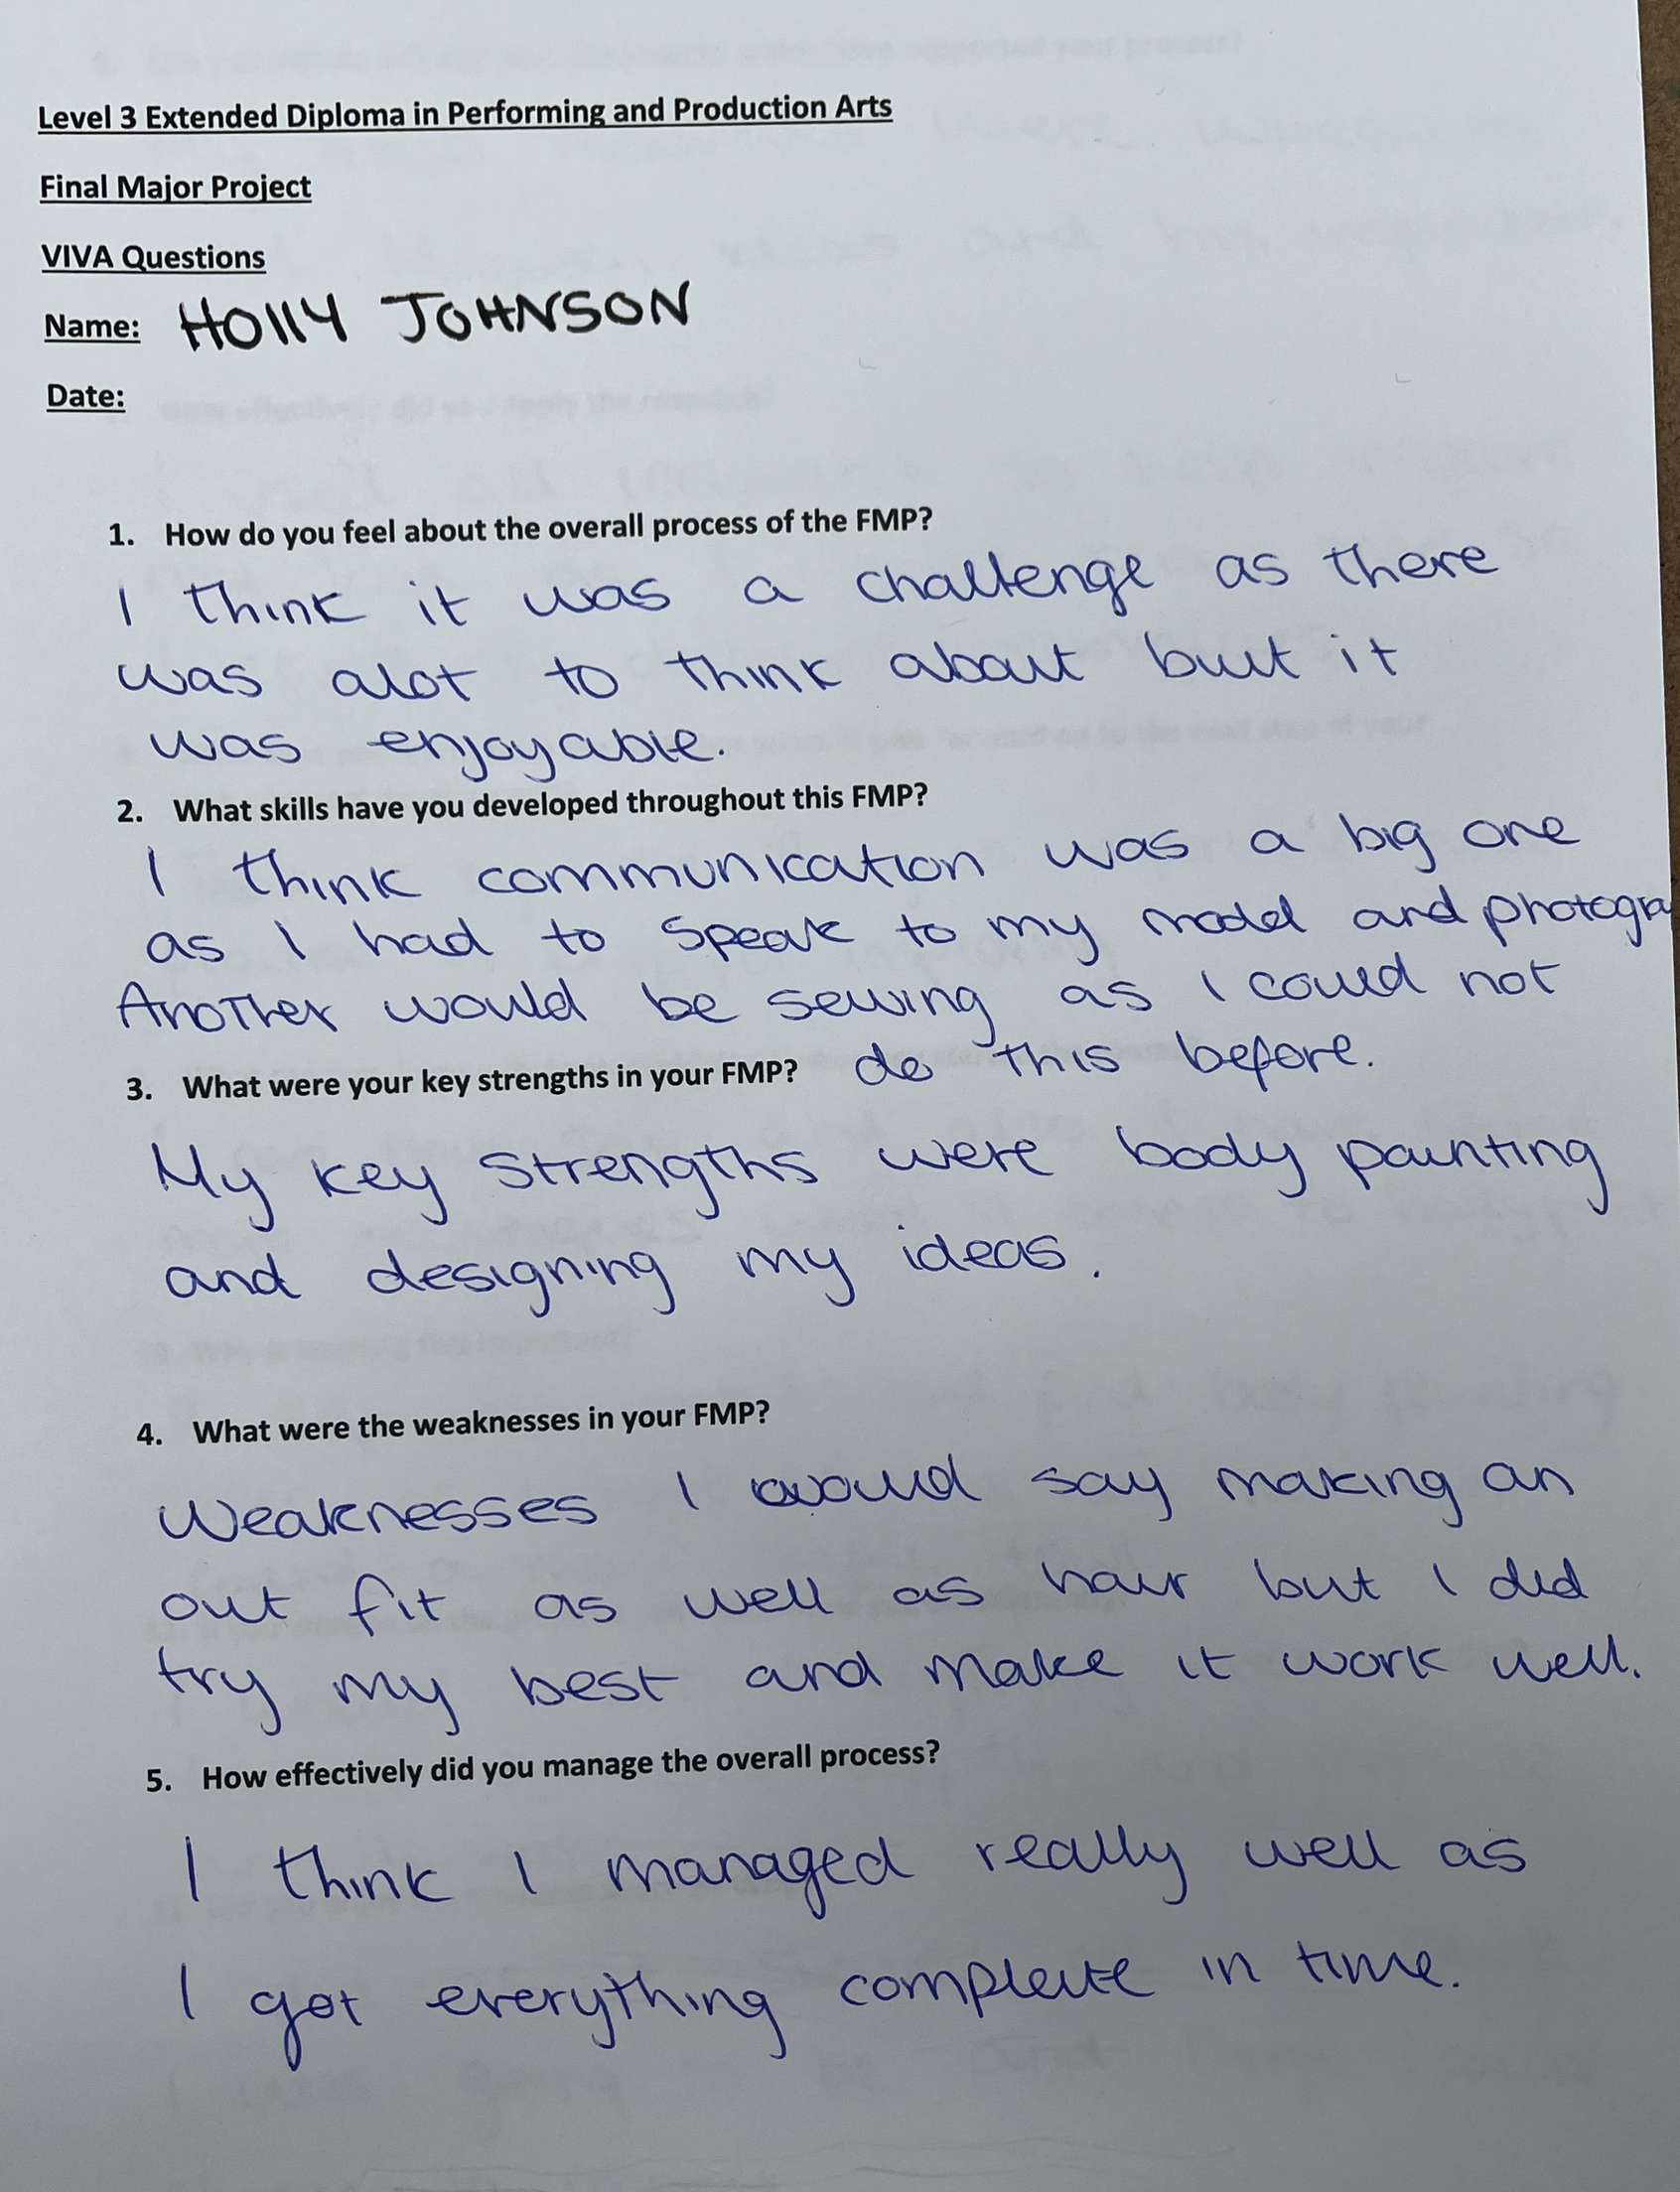 Level 3 Extended Diploma in Performing and Production Arts
Final Major Project
VIVA Questions
Name: HOLLY JOHNSON
Date:
1. How do you feel about the overall process of the FMP?
I think it was a challenge as there
was alot to think about but it
was enjoyable.
2. What skills have you developed throughout this FMP?
I think communication was a big one
as I had to speak to my model and photogra
Another would be sewing as I could not
do this before.
3. What were your key strengths in your FMP?
My key strengths were body painting
and designing my ideas.
4. What were the weaknesses in your FMP?
Weaknesses I would say making an
out fit as well as hair but I did
try my best and make it work well.
5. How effectively did you manage the overall process?
I think I managed really well as
I got everything complete in time.